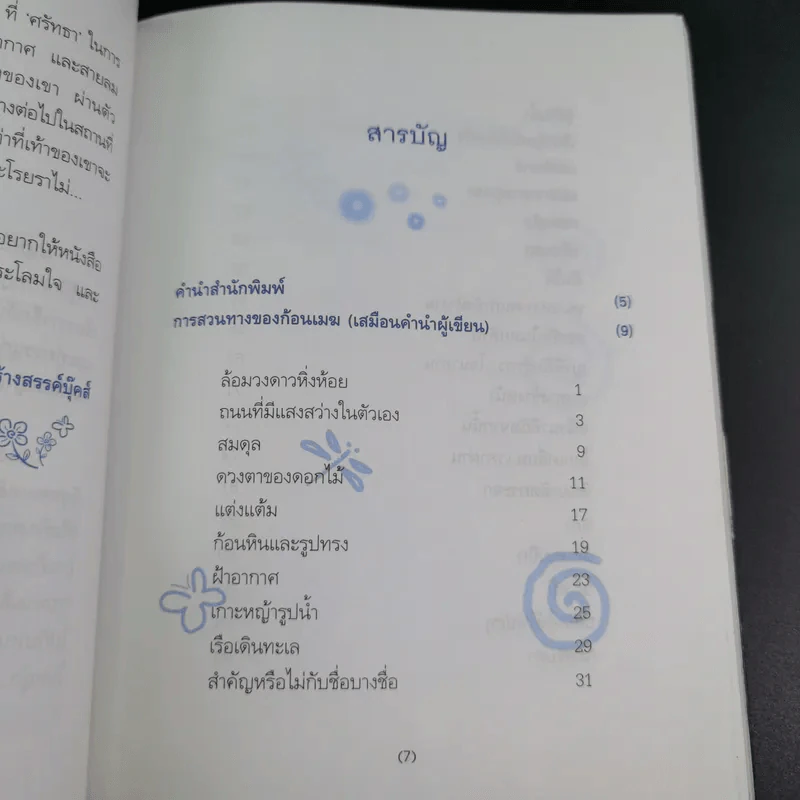 ที่ 'ศรัทธา' ในการ
และสายลม
ของเขา ผ่านตัว
ต่อไปในสถานที่
ที่เท้าของเขาจะ
โรยราไม่...
อยากให้หนังสือ
โลมใจ และ
สร้างสรรค์บุ๊คส์
สารบัญ
คำนำสำนักพิมพ์ (5)
การสวนทางของก้อนเมฆ (เสมือนคำนำผู้เขียน) (9)
ล้อมวงดาวหิ่งห้อย 1
ถนนที่มีแสงสว่างในตัวเอง 3
สมดุล 9
ดวงตาของดอกไม้ 11
แต่งแต้ม 17
ก้อนหินและรูปทรง 19
ฝ้าอากาศ 23
เกาะหญ้ารูปน้ำ 25
เรือเดินทะเล 29
สำคัญหรือไม่กับชื่อบางชื่อ 31
(7)